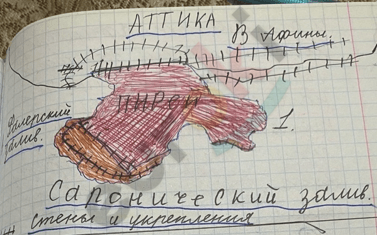 АТТИКА
В Афины.
ПИРЕЙ
1.
Фалерский
залив.
Саронический залив.
стены и укрепления